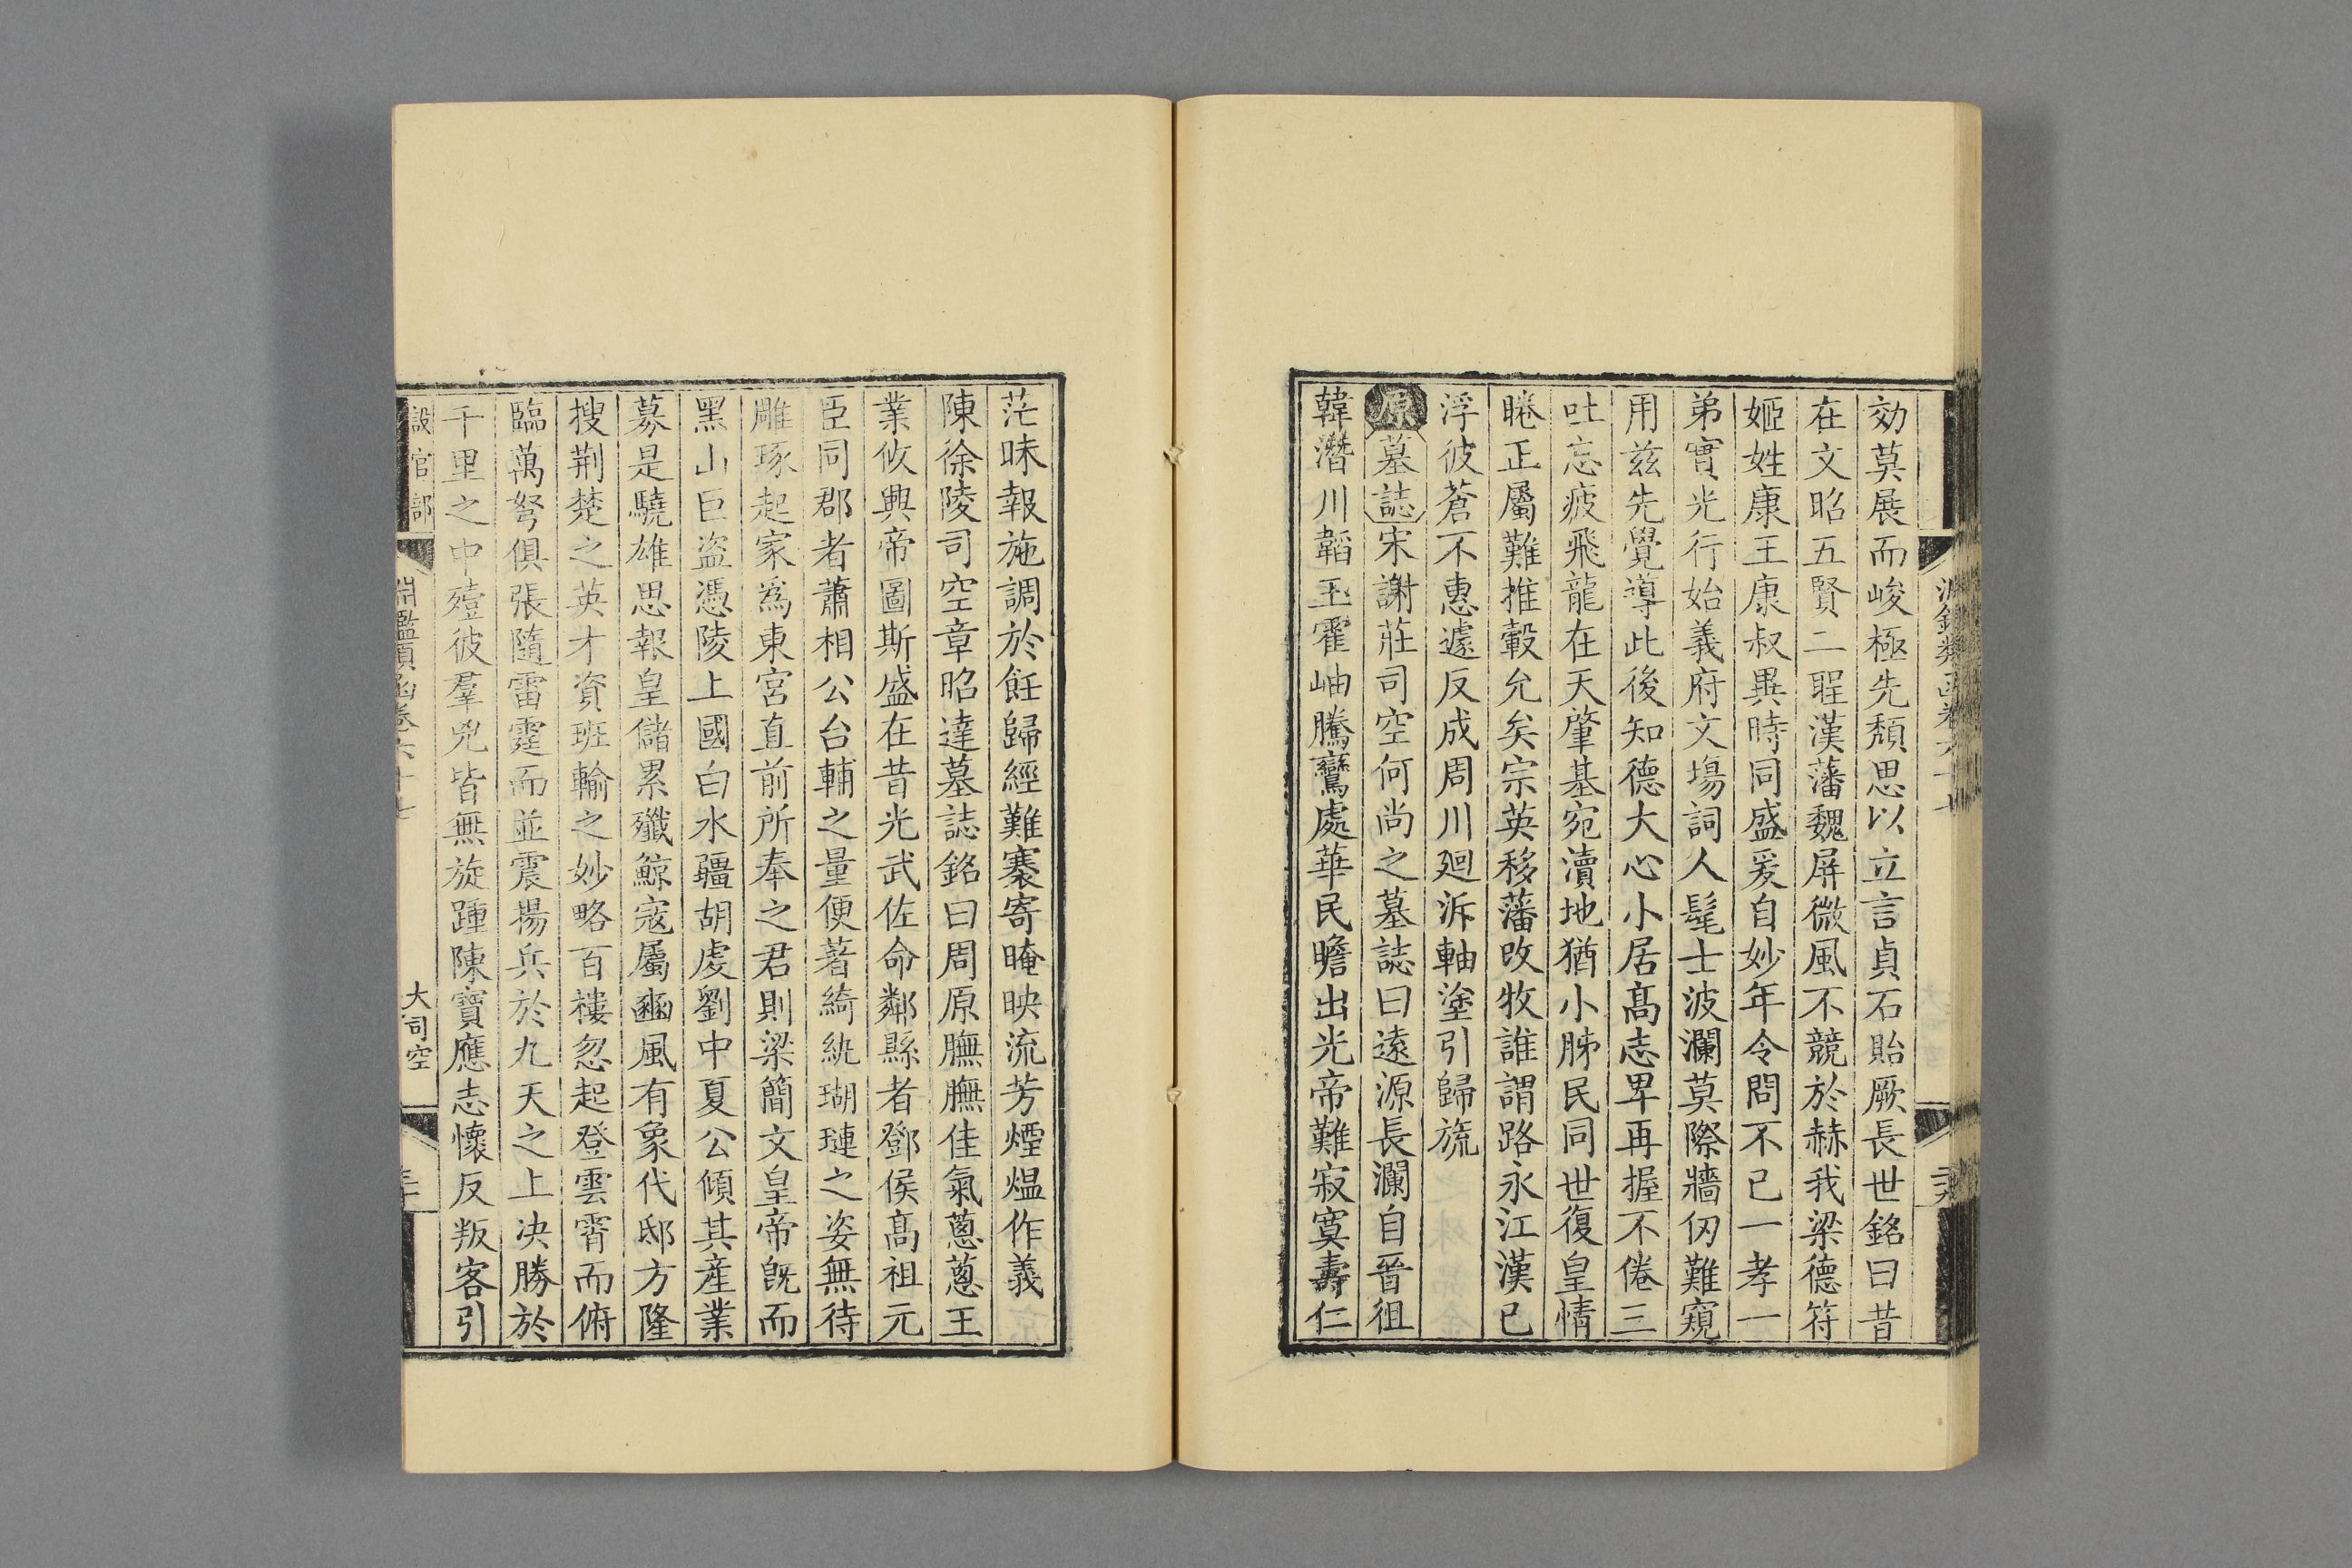 効莫展而峻極先頹思以立言貞石貽厥長世銘曰昔
在文昭五賢二聖漢藩魏屏微風不競於赫我梁德符
姬姓康王康叔異時同盛爰自妙年令問不已一孝一
弟實光行始義府文場詞人髦士波瀾莫際牆仞難窺
用兹先覺導此後知德大心小居高志卑再握不倦三
吐忘疲飛龍在天肇基宛瀆地猶小肺民同世復皇情
睠正屬難推轂允矣宗英移藩改牧誰謂路永江漢已
浮彼蒼不惠遽反成周川廻泝軸塗引歸旒
原墓誌宋謝莊司空何尚之墓誌曰遠源長瀾自晉徂
韓潛川韜玉霍岫騰鸞處華民瞻出光帝難寂寞壽仁
茫昧報施調於飪歸經難褰寄晻映流芳煙熅作義
陳徐陵司空章昭達墓誌銘曰周原膴膴佳氣蔥蔥王
業攸興帝圖斯盛在昔光武佐命鄰縣者鄧侯高祖元
臣同郡者蕭相公台輔之量便著綺紈瑚璉之姿無待
雕琢起家爲東宮直前所奉之君則梁簡文皇帝旣而
黑山巨盜憑陵上國白水疆胡虔劉中夏公傾其產業
募是驍雄思報皇儲累殲鯨寇屬豳風有象代邸方隆
搜荆楚之英才資班輸之妙略百樓忽起登雲霄而俯
臨萬弩俱張隨雷霆而並震揚兵於九天之上决勝於
千里之中殪彼羣兇皆無旋踵陳寶應志懷反叛客引
設官部
淵鑑類函卷六十七
大司空